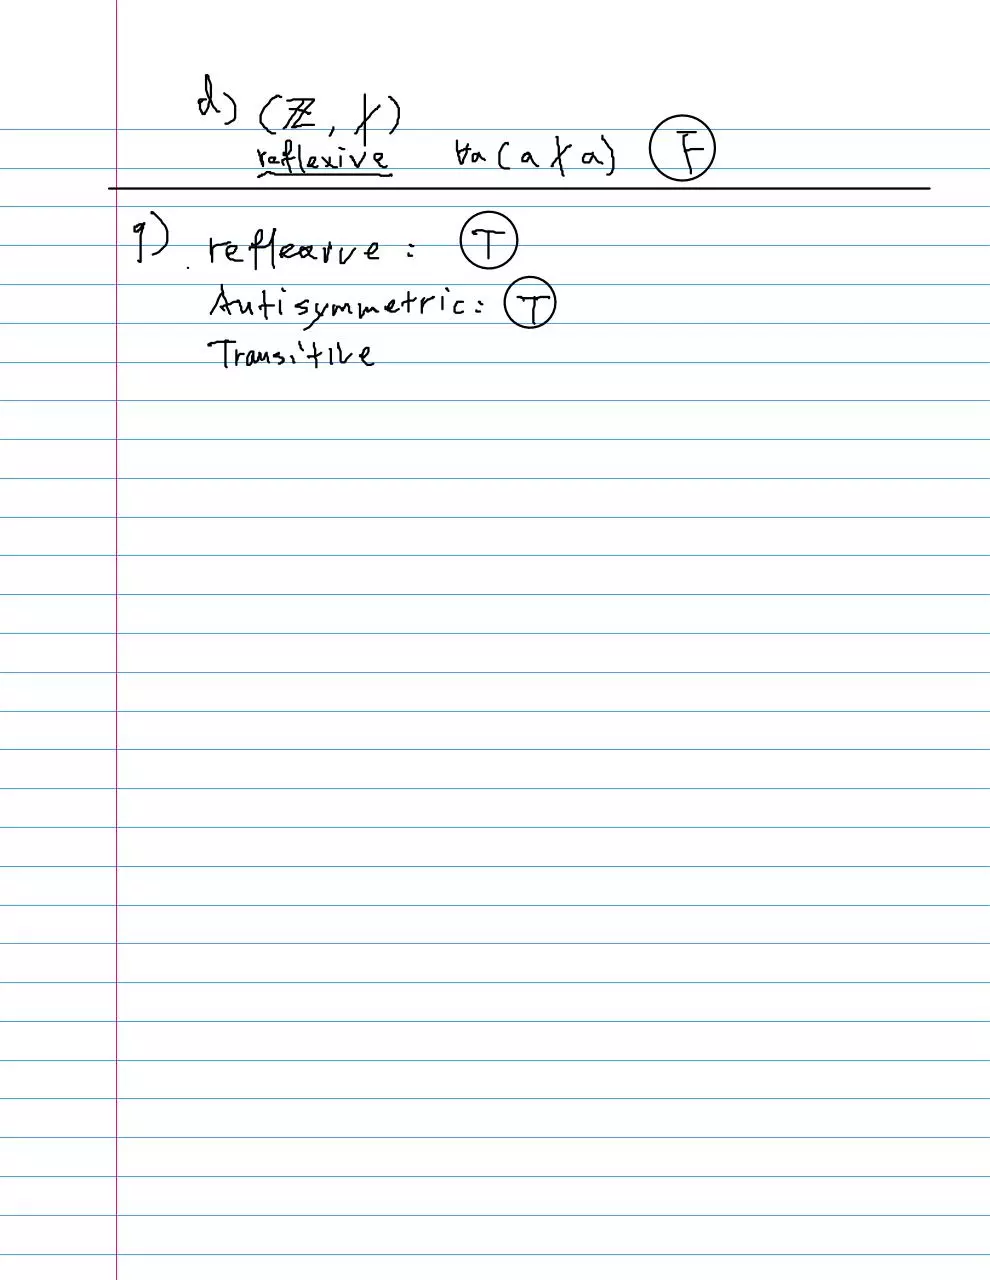 d) (ℤ, ∤)
reflexive ∀a (a ∤ a) F
9) reflexive : T
Antisymmetric: T
Transitive